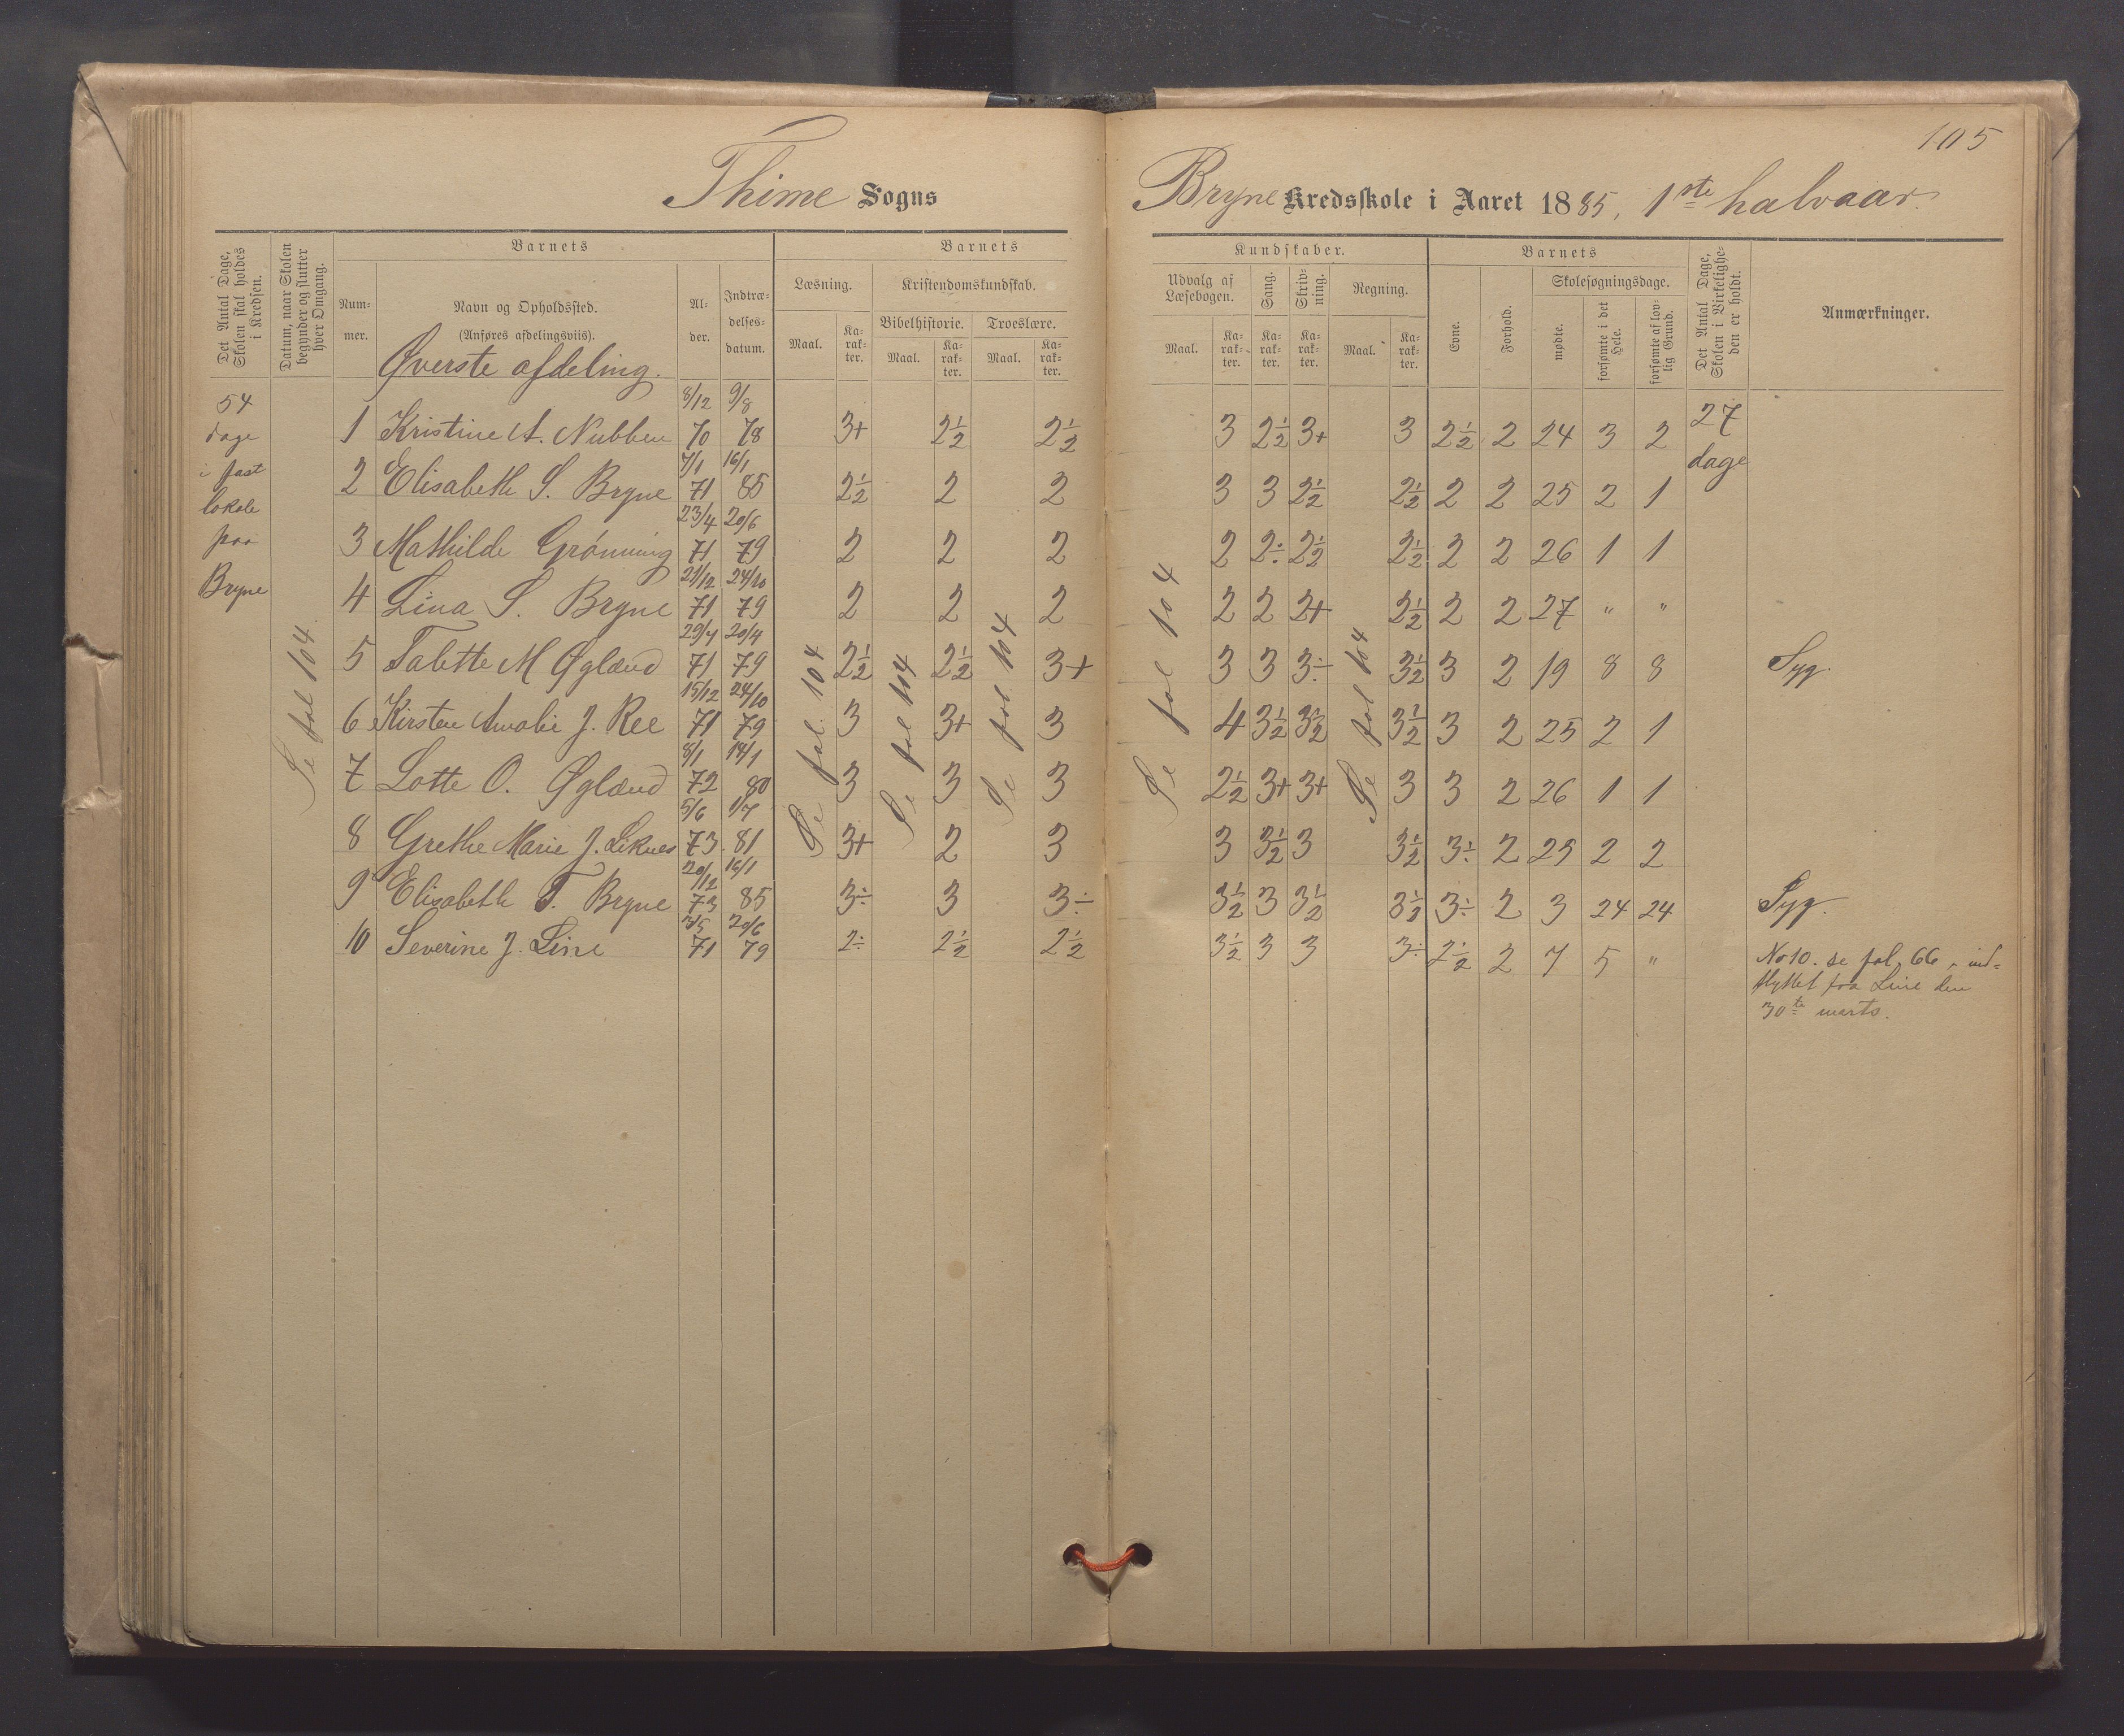 105
Thime Sogns Bryne Kredsskole i Aaret 1885, 1ste halvaar
Det Antal Dage, Skolen skal holdes i Kredsen.
Datum, naar Skolen begynder og slutter hver Omgang.
Barnets
Nummer.
Navn og Opholdssted.
(Anføres afdelingsviis).
Alder.
Indtrædelsesdatum.
Barnets Kundskaber.
Læsning.
Maal. Karakter.
Kristendomskundskab.
Bibelhistorie. Troeslære.
Maal. Karakter. Maal. Karakter.
Udvalg af Læsebogen.
Maal. Karakter.
Sang. Karakter.
Skrivning. Karakter.
Regning.
Maal. Karakter.
Barnets
Evne.
Forhold.
Skolesøgningsdage.
mødte.
forsømte i det Hele.
forsømte af lovlig Grund.
Det Antal Dage, Skolen i Virkeligheden er holdt.
Anmærkninger.
Øverste afdeling.
54
dage
i fast
lokale
paa
Bryne
Se fol 104.
Se fol. 104
Se fol 104
Se fol 104
Se fol 104
Se fol 104
27
dage
1 Kristine A. Nubben 8/12 70 9/8 78 3+ 2½ 2½ 3 2½ 3+ 3 2½ 2 24 3 2
2 Elisabeth S. Bryne 7/1 71 16/1 85 2½ 2 2 3 3 2½ 2½ 2 2 25 2 1
3 Mathilde Grønning 23/4 71 20/6 79 2 2 2 2 2÷ 2½ 2½ 2 2 26 1 1
4 Lina S. Bryne 21/12 71 24/10 79 2 2 2 2 2 2+ 2½ 2 2 27 " "
5 Tabette M Øglænd 29/4 71 20/4 79 2½ 2½ 3+ 3 3 3÷ 3½ 3 2 19 8 8 Syg.
6 Kirsten Amalie J. Ree 15/12 71 24/10 79 3 3+ 3 4 3½ 3½ 3½ 3 2 25 2 1
7 Lotte O. Øglænd 8/1 72 14/1 80 3 3 3 2½ 3+ 3+ 3 3 2 26 1 1
8 Grethe Marie J. Liknes 5/6 73 1/7 81 3+ 2 3 3 3½ 3 3½ 3÷ 2 25 2 2
9 Elisabeth T. Bryne 20/12 73 16/1 85 3÷ 3 3÷ 3½ 3 3½ 3½ 3÷ 2 3 24 24 Syg.
10 Severine J. Line 71 20/6 79 2÷ 2½ 2½ 3½ 3 3 3÷ 2½ 2 7 5 "
No 10. se fol. 66 - ind=
flyttet fra Line den
30te marts.